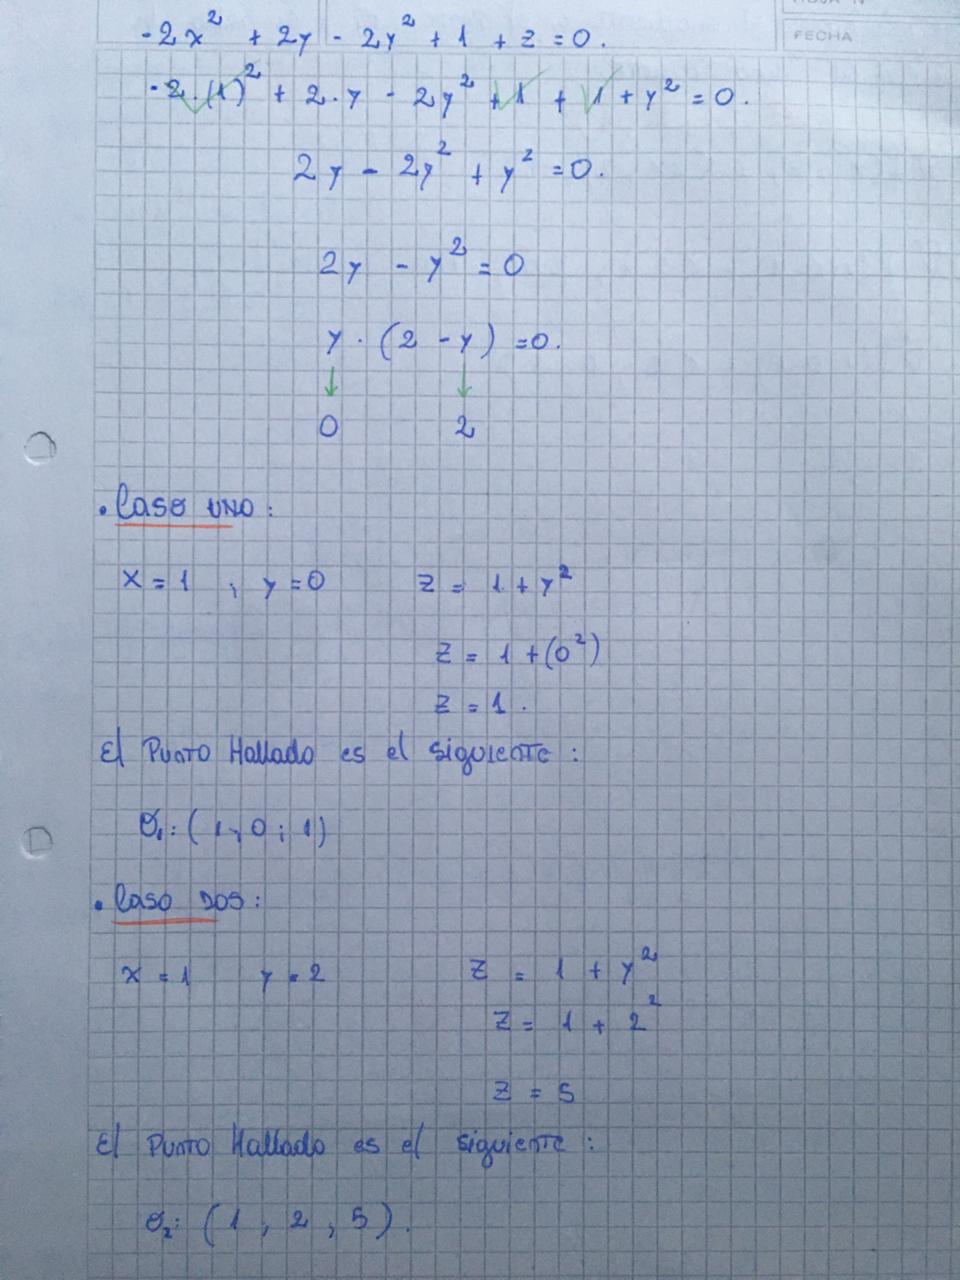 FECHA
-2x² + 2y - 2y² + 1 + z = 0.
-2.(1)² + 2.y - 2y² + 1 + 1 + y² = 0.
2y - 2y² + y² = 0.
2y - y² = 0
y . (2 - y) = 0.
↓ ↓
0 2
. Caso uno :
x = 1 , y = 0 z = 1 + y²
z = 1 + (0²)
z = 1 .
El Punto Hallado es el siguiente :
O₁: ( 1 , 0 ; 1)
. Caso DOS :
x = 1 y = 2 z = 1 + y²
z = 1 + 2²
z = 5
El Punto Hallado es el siguiente :
O₂: ( 1 , 2 , 5 ).